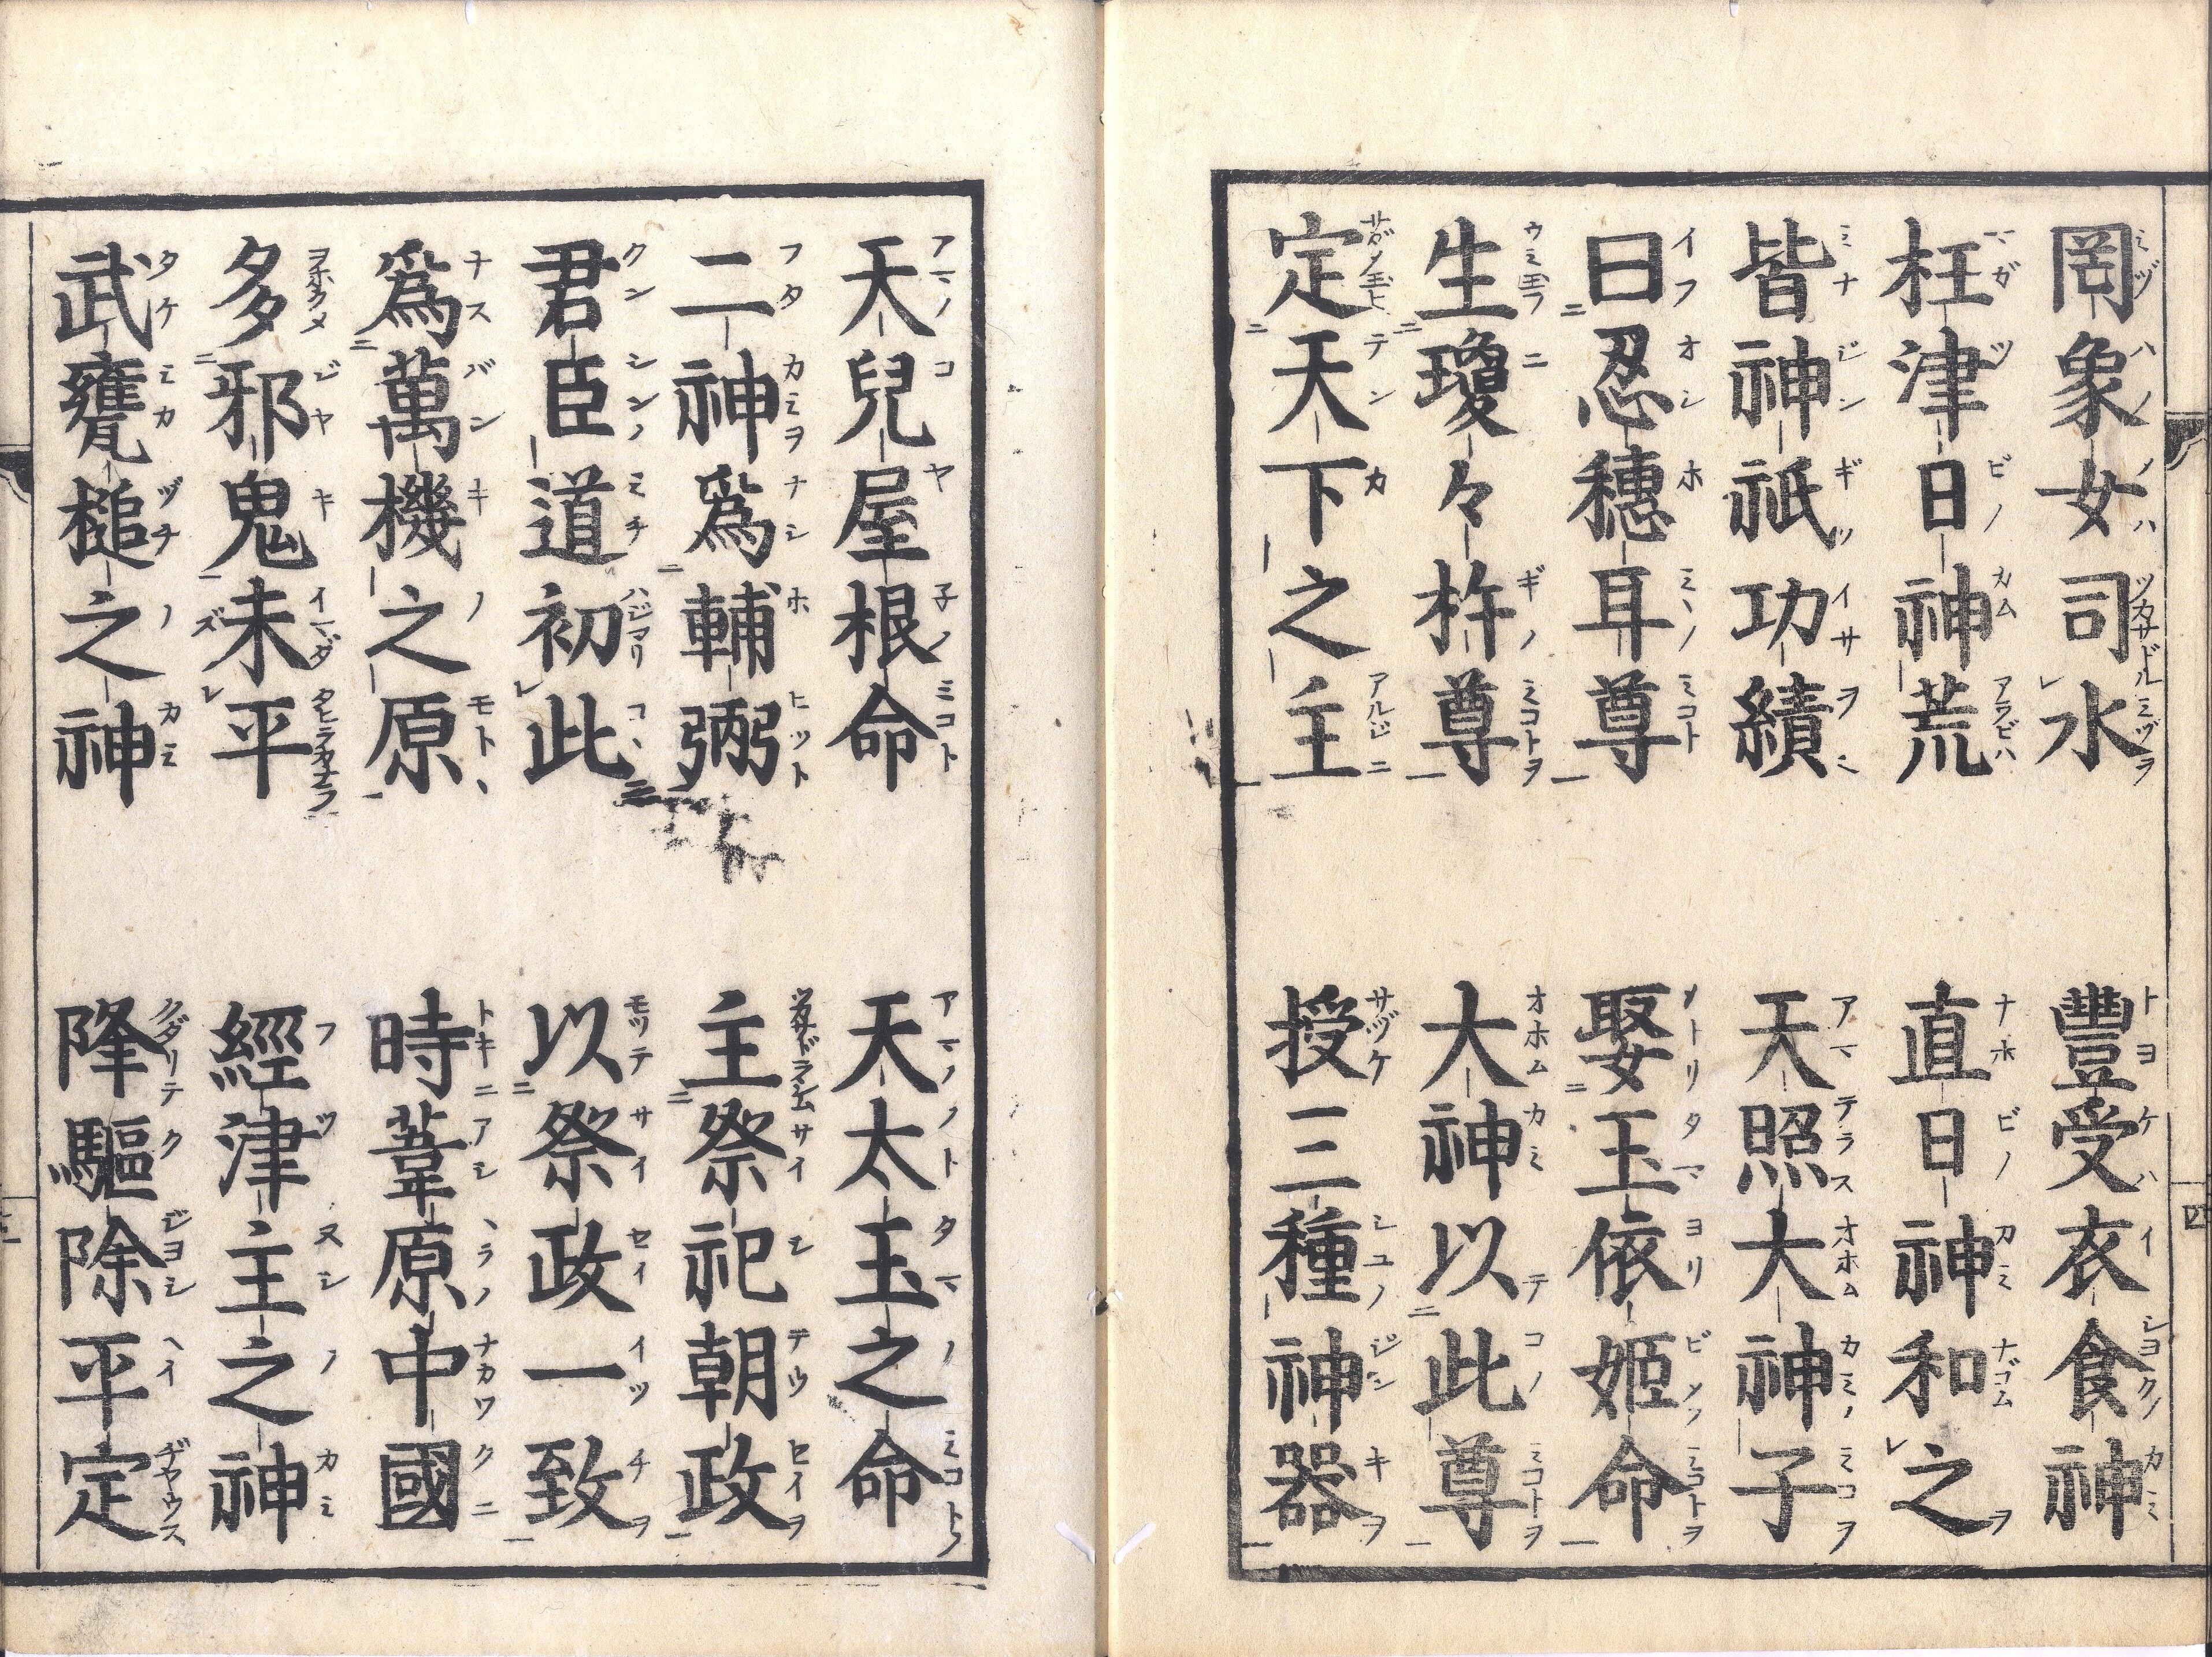 罔象女司水　豐受衣食神
枉津日神荒　直日神和之
皆神祇功績　天照大神子
曰忍穗耳尊　娶玉依姫命
生瓊々杵尊　大神以此尊
定天下之主　授三種神器
天兒屋根命　天太玉之命
二神爲輔弼　主祭祀朝政
君臣道初此　以祭政一致
爲萬機之原　時葦原中國
多邪鬼未平　經津主之神
武甕槌之神　降驅除平定